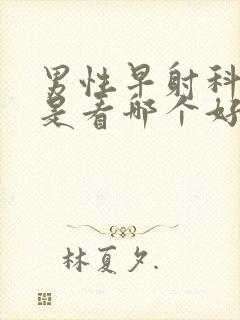 男性早射科
是看哪个好
林夏夕.